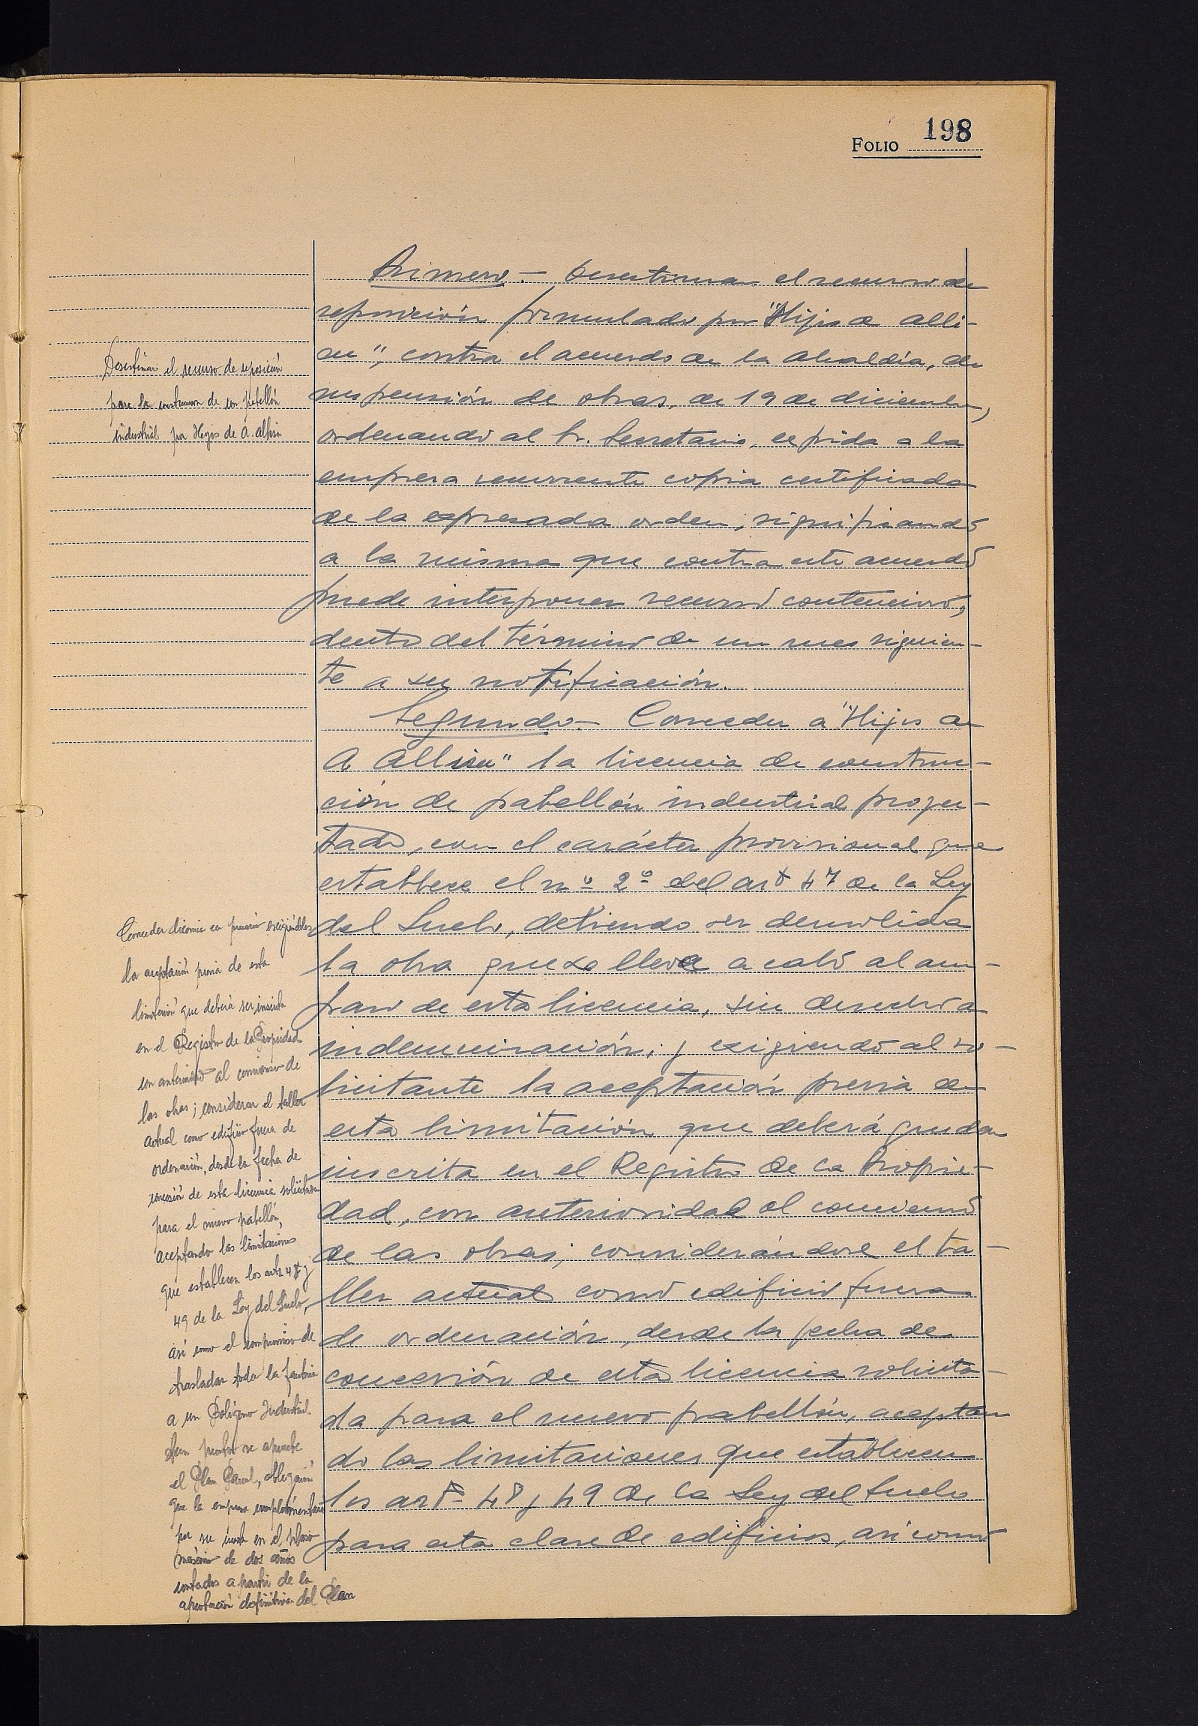 FOLIO 198
Primero.- Desestimar el recurso de
reposición formulado por "Hijos de Alli-
su", contra el acuerdo de la Alcaldía, de
suspensión de obras, de 19 de diciembre,
ordenando al Sr. Secretario, expida a la
empresa recurrente copia certificada
de la expresada orden, significando
a la misma que contra este acuerdo
puede interponer recurso contencioso,
dento del término de un mes siguien-
te a su notificación.
Segundo.- Conceder a "Hijos de
A Allisu" la licencia de construc-
ción de pabellón industrial proyec-
tado, con el carácter provisional que
establece el nº 2º del artº 47 de la Ley
del Suelo, debiendo ser demolida
la obra que se lleve a cabo al am-
paro de esta licencia, sin derecho a
indemnización; y exigiendo al so-
licitante la aceptación previa de
esta limitación que deberá quedar
inscrita en el Registro de la Propie-
dad, con anterioridad al comienzo
de las obras; considerándose el ta-
ller actual como edificio fuera
de ordenación, desde la fecha de
concesión de esta licencia solicita-
da para el nuevo pabellón, aceptan
do las limitaciones que establecen
los artºs 48 y 49 de la Ley del Suelo
para esta clase de edificios, así como
Desestimar el recurso de reposición
para la construccion de un pabellón
industrial por Hijos de A.
Conceder licencia en precario exigiéndoles
la aceptación previa de esta
limitación que deberá ser inscrita
en el Registro de la Propiedad
con anterioridad al comienzo de
las obras; considerar el taller
actual como edificio fuera de
ordenación, desde la fecha de
concesión de esta licencia solicitada
para el nuevo pabellón,
aceptando las limitaciones
que establecen los artºs 48 y
49 de la Ley del Suelo,
así como el compromiso de
trasladar toda la fabrica
a un Polígono Industrial.
pronto se apruebe
el Plan Parcial, obligación
que la empresa
por su cuenta en el plazo
máximo de dos años
contados a partir de la
aprobación definitiva del Plan